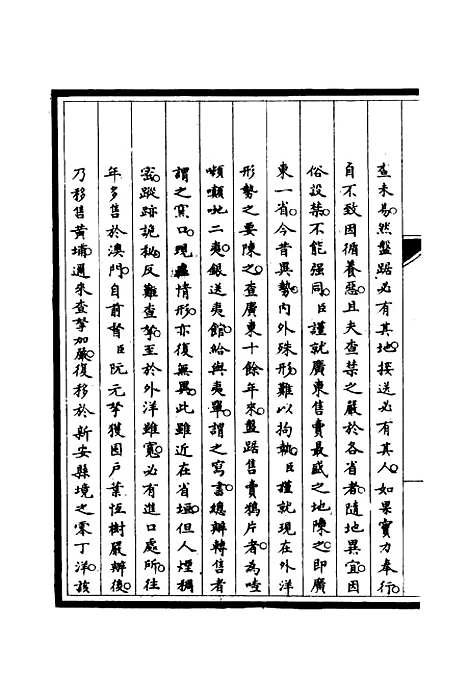 查未易。然盤踞必有其地。接送必有其人。如果實力奉行。
自不致因循養惡。且夫查禁之嚴於各省者。隨地異宜。因
俗設禁。不能强同。臣謹就廣東售賣最盛之地陳之。即廣
東一省。今昔異勢。內外殊形。難以拘執。臣謹就現在外洋
形勢之要陳之。查廣東十餘年來。盤踞售賣鴉片者。為𠸄
㘔㘔吔二夷。銀送夷館。給與夷單。謂之寫書。總辦轉售者。
謂之窯口。現雖情形亦復無異。此雖近在省垣。但人煙稠
密。蹤跡詭秘。反難查拏。至於外洋雖寬。必有進口處所。往
年多售於澳門。自前督臣阮元拏獲因戶葉恆樹嚴辦後。
乃移售黃埔。邇來查拏加嚴。復移於新安縣境之零丁洋。該